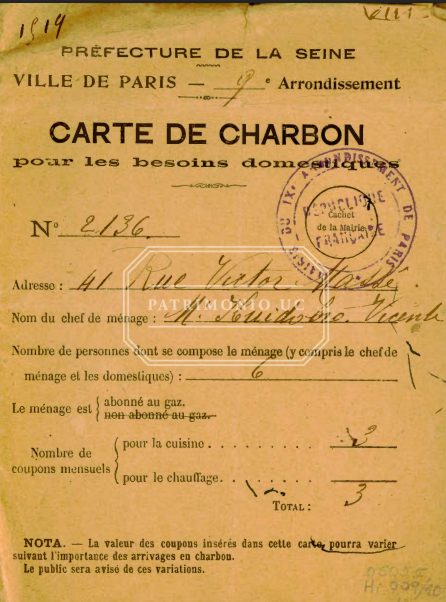 1919
PRÉFECTURE DE LA SEINE
VILLE DE PARIS — 9e Arrondissement
CARTE DE CHARBON
pour les besoins domestiques
MAIRIE DU IXe ARRONDISSEMENT DE PARIS
RÉPUBLIQUE
Cachet
de la Mairie
FRANÇAISE
No 2136
Adresse : 41 Rue Victor Massé
PATRIMONIO UC
Nom du chef de ménage : Mr Huidobro Vicente
Nombre de personnes dont se compose le ménage (y compris le chef de
ménage et les domestiques) : 6
Le ménage est { abonné au gaz.
non abonné au gaz.
Nombre de
coupons mensuels
pour la cuisine . . . . . . . . . 3
pour le chauffage. . . . . . . .
TOTAL : 3
NOTA. — La valeur des coupons insérés dans cette carte pourra varier
suivant l'importance des arrivages en charbon.
Le public sera avisé de ces variations.